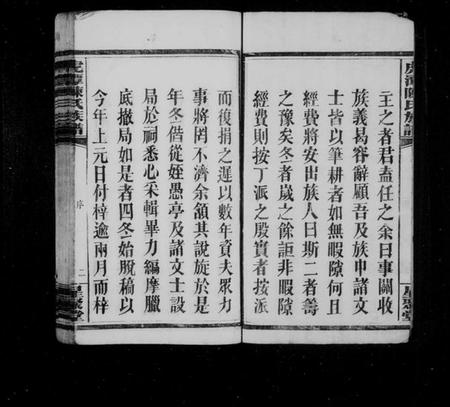 虎潭陳氏族譜
主之者君盍任之余曰事關收
族義曷容辭顧吾及族申諸文
士皆以筆耕者如無暇隙何且
經費將安出族人曰斯二者善
之豫矣冬者歲之餘詎非暇隙
經費則按丁派之殷實者按派
星聚堂
而復捐之遲以數年資夫眾力
事將罔不濟余頷其說旋於是
年冬偕從姪愚亭及諸文士設
局於祠悉心采輯畢力編摩臘
底撤局如是者四冬始脫稿以
今年上元日付梓逾兩月而梓
虎潭陳氏族譜
序
二
星聚堂